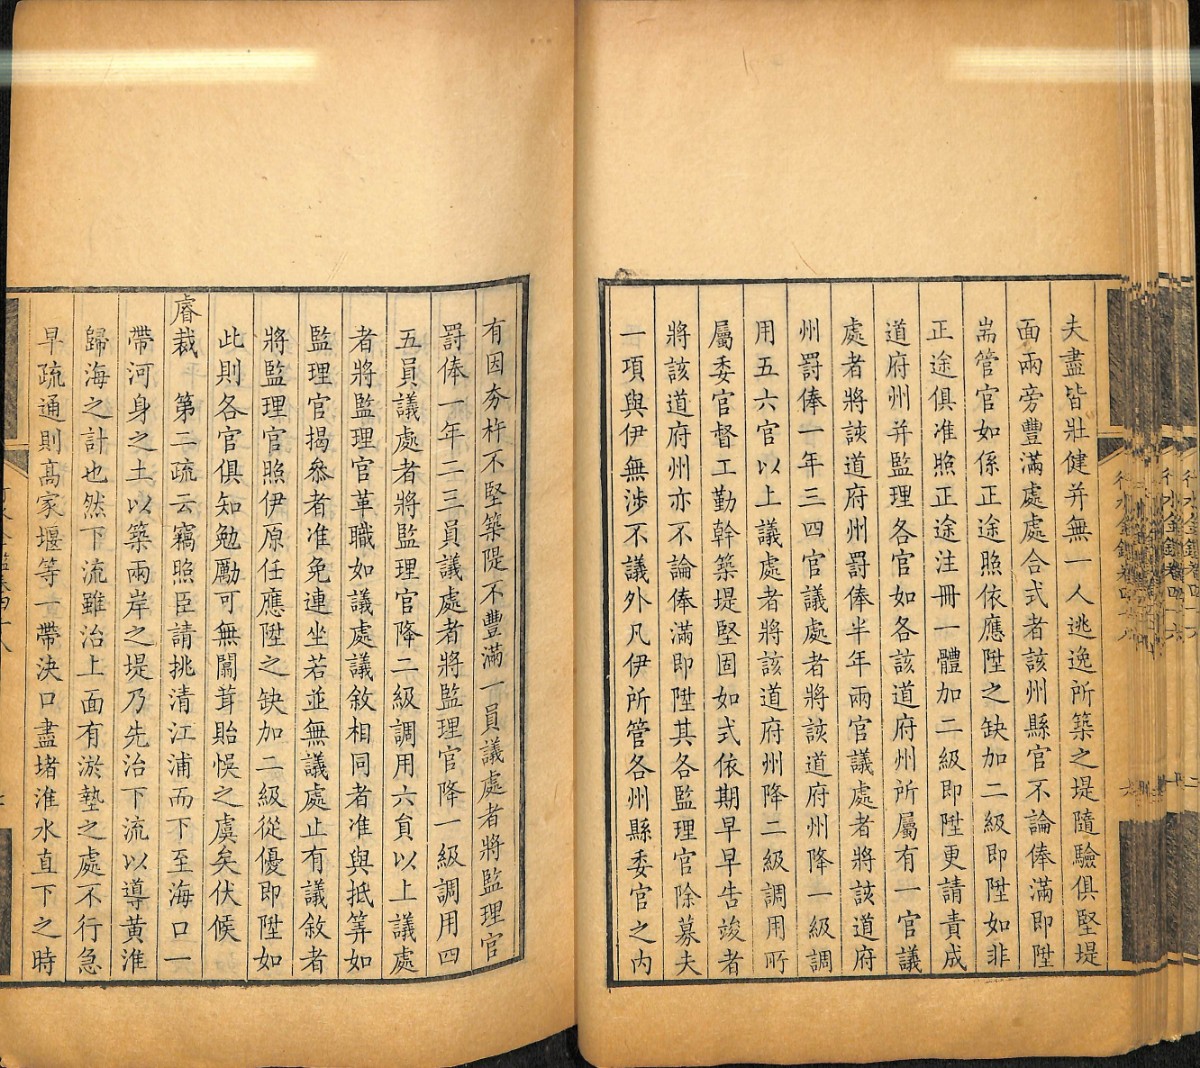 夫盡皆壯健并無一人逃逸所築之堤隨驗俱堅堤
面兩旁豐滿處處合式者該州縣官不論俸滿即陞
耑管官如係正途照依應陞之缺加二級即陞如非
正途俱准照正途注冊一體加二級即陞更請責成
道府州并監理各官如各該道府州所屬有一官議
處者將該道府州罰俸半年兩官議處者將該道府
州罰俸一年三四官議處者將該道府州降一級調
用五六官以上議處者將該道府州降二級調用所
屬委官督工勤幹築堤堅固如式依期早早告竣者
將該道府州亦不論俸滿即陞其各監理官除募夫
一項與伊無涉不議外凡伊所管各州縣委官之內
有因夯杵不堅築隄不豐滿一員議處者將監理官
罰俸一年二三員議處者將監理官降一級調用四
五員議處者將監理官降二級調用六負以上議處
者將監理官革職如議處議敘相同者准與抵筭如
監理官揭叅者准免連坐若並無議處止有議敘者
將監理官照伊原任應陞之缺加二級從優即陞如
此則各官俱知勉勵可無闒茸貽悞之虞矣伏候
睿裁　第二疏云竊照臣請挑清江浦而下至海口一
帶河身之土以築兩岸之堤乃先治下流以導黃淮
歸海之計也然下流雖治上面有淤墊之處不行急
早疏通則高家堰等一帶決口盡堵淮水直下之時
行水金鑑卷四十六